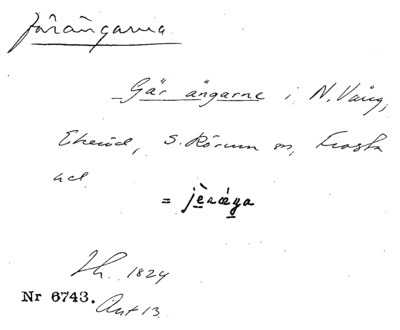 Järängarna
Gär ängarne i N. Vång,
Ekeröd, S. Rörum sn, Frosta
hd
= jèräŋa
Ih. 1824
Nr 6743. Ant 13.